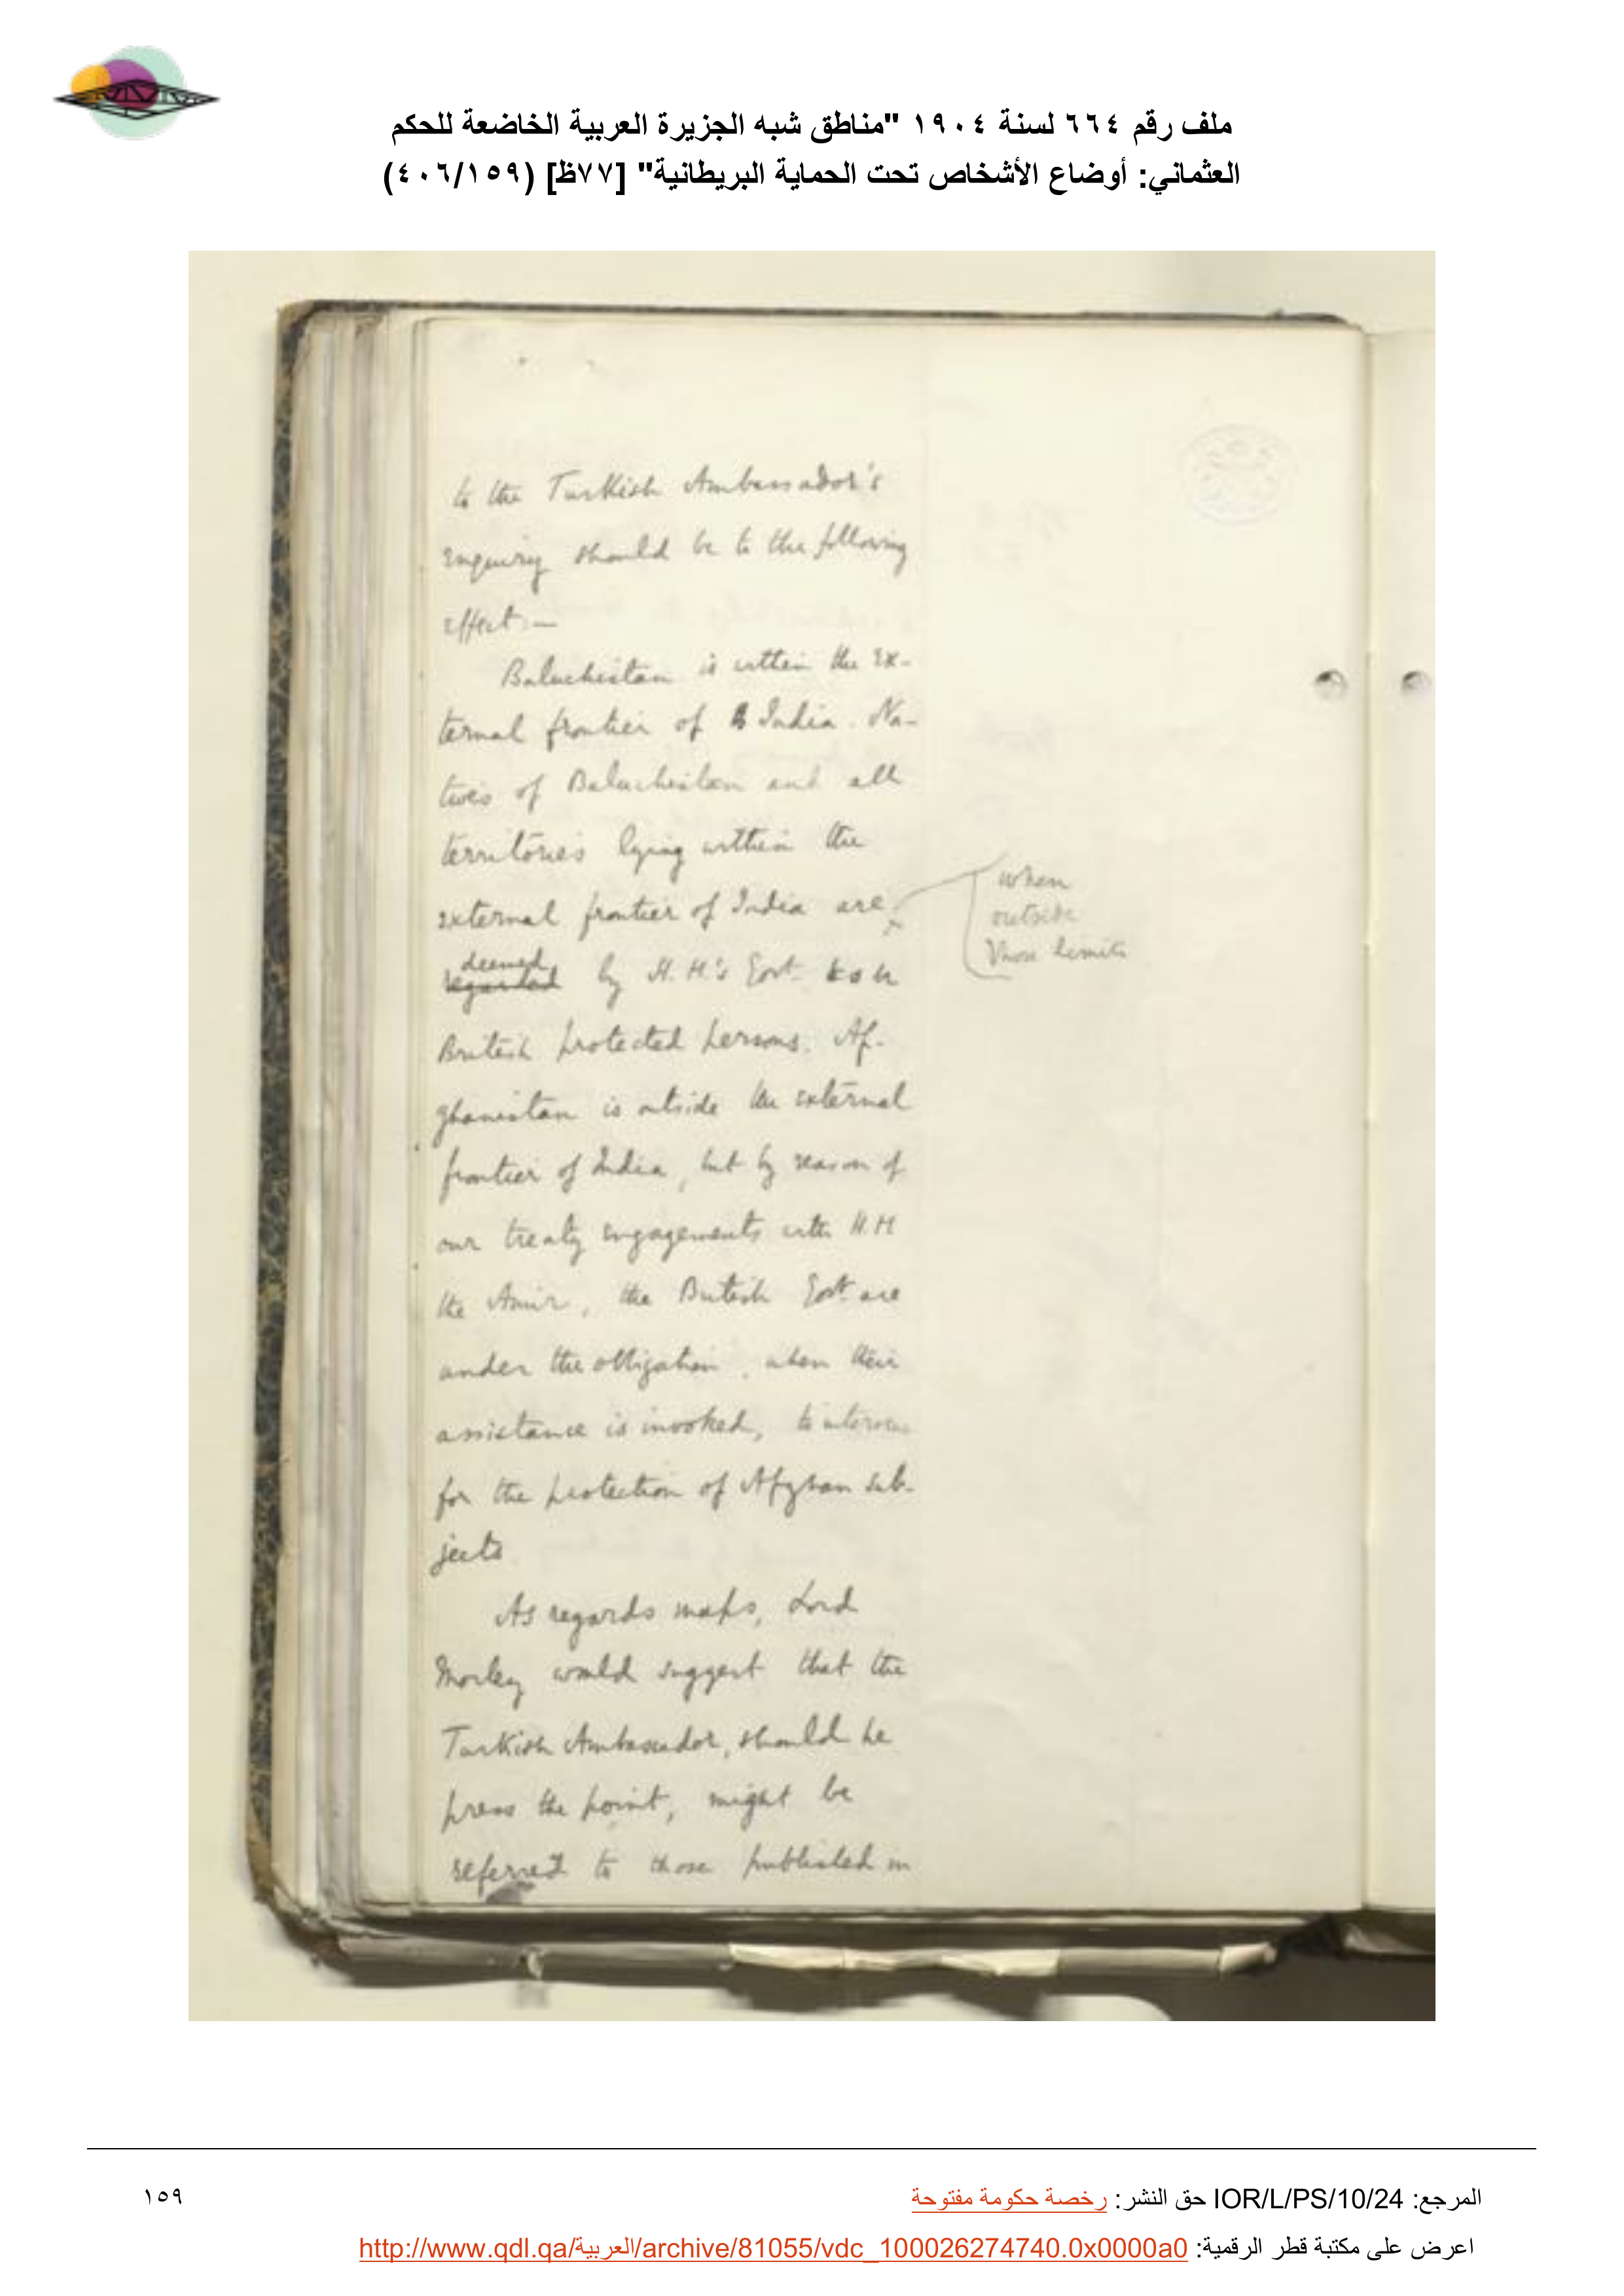 ملف رقم ٦٦٤ لسنة ١٩٠٤ "مناطق شبه الجزيرة العربية الخاضعة للحكم
العثماني: أوضاع الأشخاص تحت الحماية البريطانية" [٧٧ظ] (٤٠٦/١٥٩)
to the Turkish Ambassador's
enquiry should be to the following
effect:—
Baluchistan is within the ex-
ternal frontier of India. Na-
tives of Baluchistan and all
territories lying within the
external frontier of India are
when
outside
those limits
deemed
regarded by H.M.'s Govt. to be
British protected persons. Af-
ghanistan is outside the external
frontier of India, but by reason of
our treaty engagements with H.H
the Amir, the British Govt. are
under the obligation, when their
assistance is invoked, to intervene
for the protection of Afghan sub-
jects
As regards maps, Lord
Morley would suggest that the
Turkish Ambassador, should he
press the point, might be
referred to those published in
المرجع: IOR/L/PS/10/24 حق النشر: رخصة حكومة مفتوحة
١٥٩
اعرض على مكتبة قطر الرقمية: http://www.qdl.qa/العربية/archive/81055/vdc_100026274740.0x0000a0